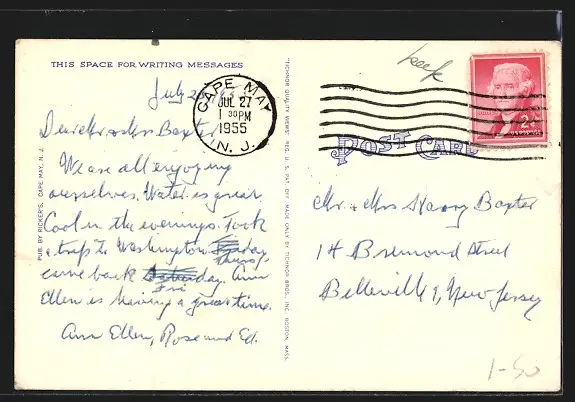 THIS SPACE FOR WRITING MESSAGES
July
CAPE MAY
JUL 27
1 30 PM
1955
N. J.
Dear Mr. & Mrs Baxter
We are all enjoying
ourselves. Water is great.
Cool in the evenings. Took
a trip to Washington Thurs,
came back Fri. Ann
Ellen is having a great time.
Ann Ellen, Rose and Ed.
PUB. BY RICKER'S, CAPE MAY, N. J.
"TICHNOR QUALITY VIEWS" REG. U. S. PAT. OFF. MADE ONLY BY TICHNOR BROS., INC. BOSTON, MASS.
2¢
POST CARD
Mr. & Mrs Harry Baxter
14 Bremond Street
Belleville 9, New Jersey
1-50